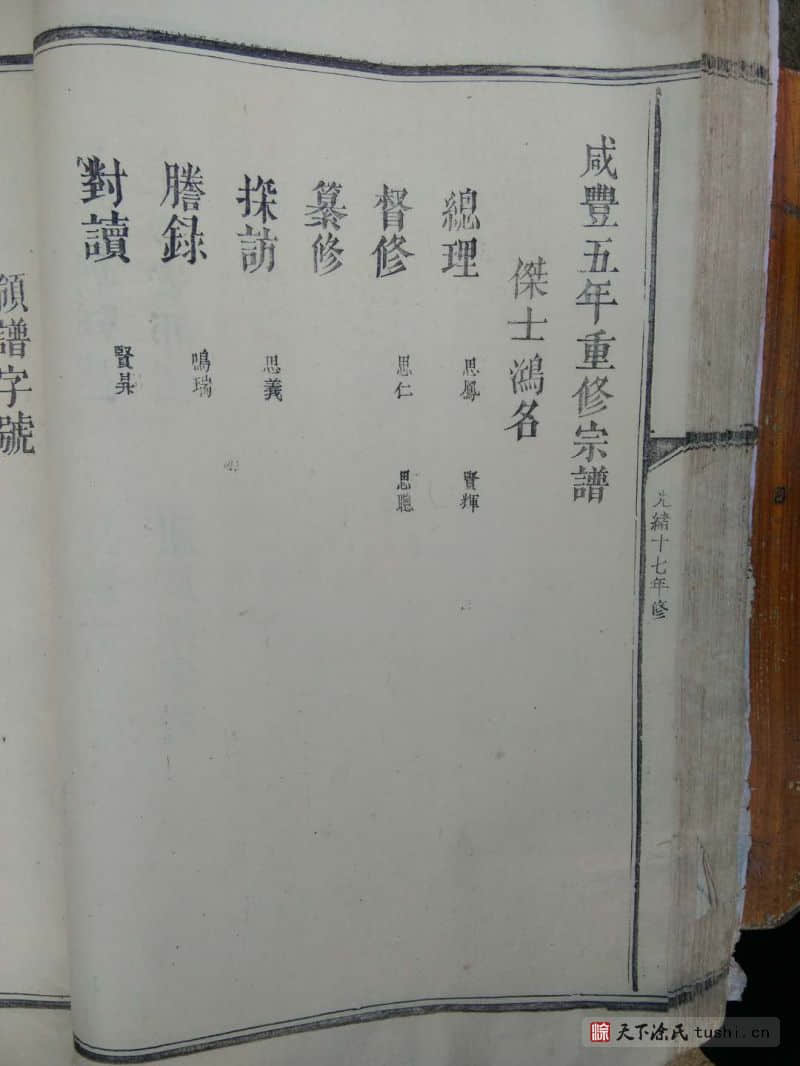 光緒十七年修
咸豐五年重修宗譜
傑士鴻名
總理 思鳳 賢輝
督修 思仁 思聰
纂修
探訪 思義
謄録 鳴瑞
對讀 賢昇
領譜字號
天下涂氏 tushi.cn